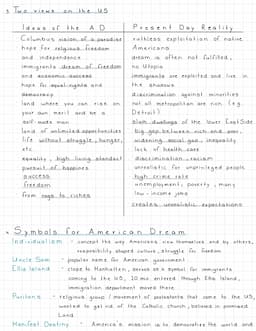 3. Two views on the US
Ideas of the A D
Columbus vision of a paradise
hope for religious freedom
and independence
immigrants dream of freedom
and economic success
hope for equal rights and
democracy
land where you can rise on
your own merit and be a
self-made man
land of unlimited opportunities
life without struggle, hunger,
etc.
equality, high living standart
pursuit of happiness
success
freedom
from rags to riches
Present Day Reality
ruthless exploitation of native
Americans
dream is often not fulfilled,
no Utopia
immigrants are exploited and live in
the shadows
discrimination against minorities
not all metropolitan are rich (e.g.
Detroit)
slum dwellings of the lower East Side
big gap between rich and poor,
widening social gap, inequality
lack of health care
discrimination, racism
unrealistic for unprivileged people
high crime rate
unemployment, poverty, many
low-income jobs
creates unrealistic expectations
4. Symbols for American Dream
Individualism - concept the way Americans view themselves and by others,
responsibility, shaped culture, struggle for freedom
Uncle Sam - popular name for American government
Ellis Island - close to Manhattan, serves as a symbol for immigrants
coming to the US, 20 mio. entered through Ellis Island,
immigration department moved there
Puritans - religious group / movement of protestants that came to the US,
wanted to get rid of the Catholic church, believed in promised
Land
Manifest Destiny - America's mission is to democratize the world and